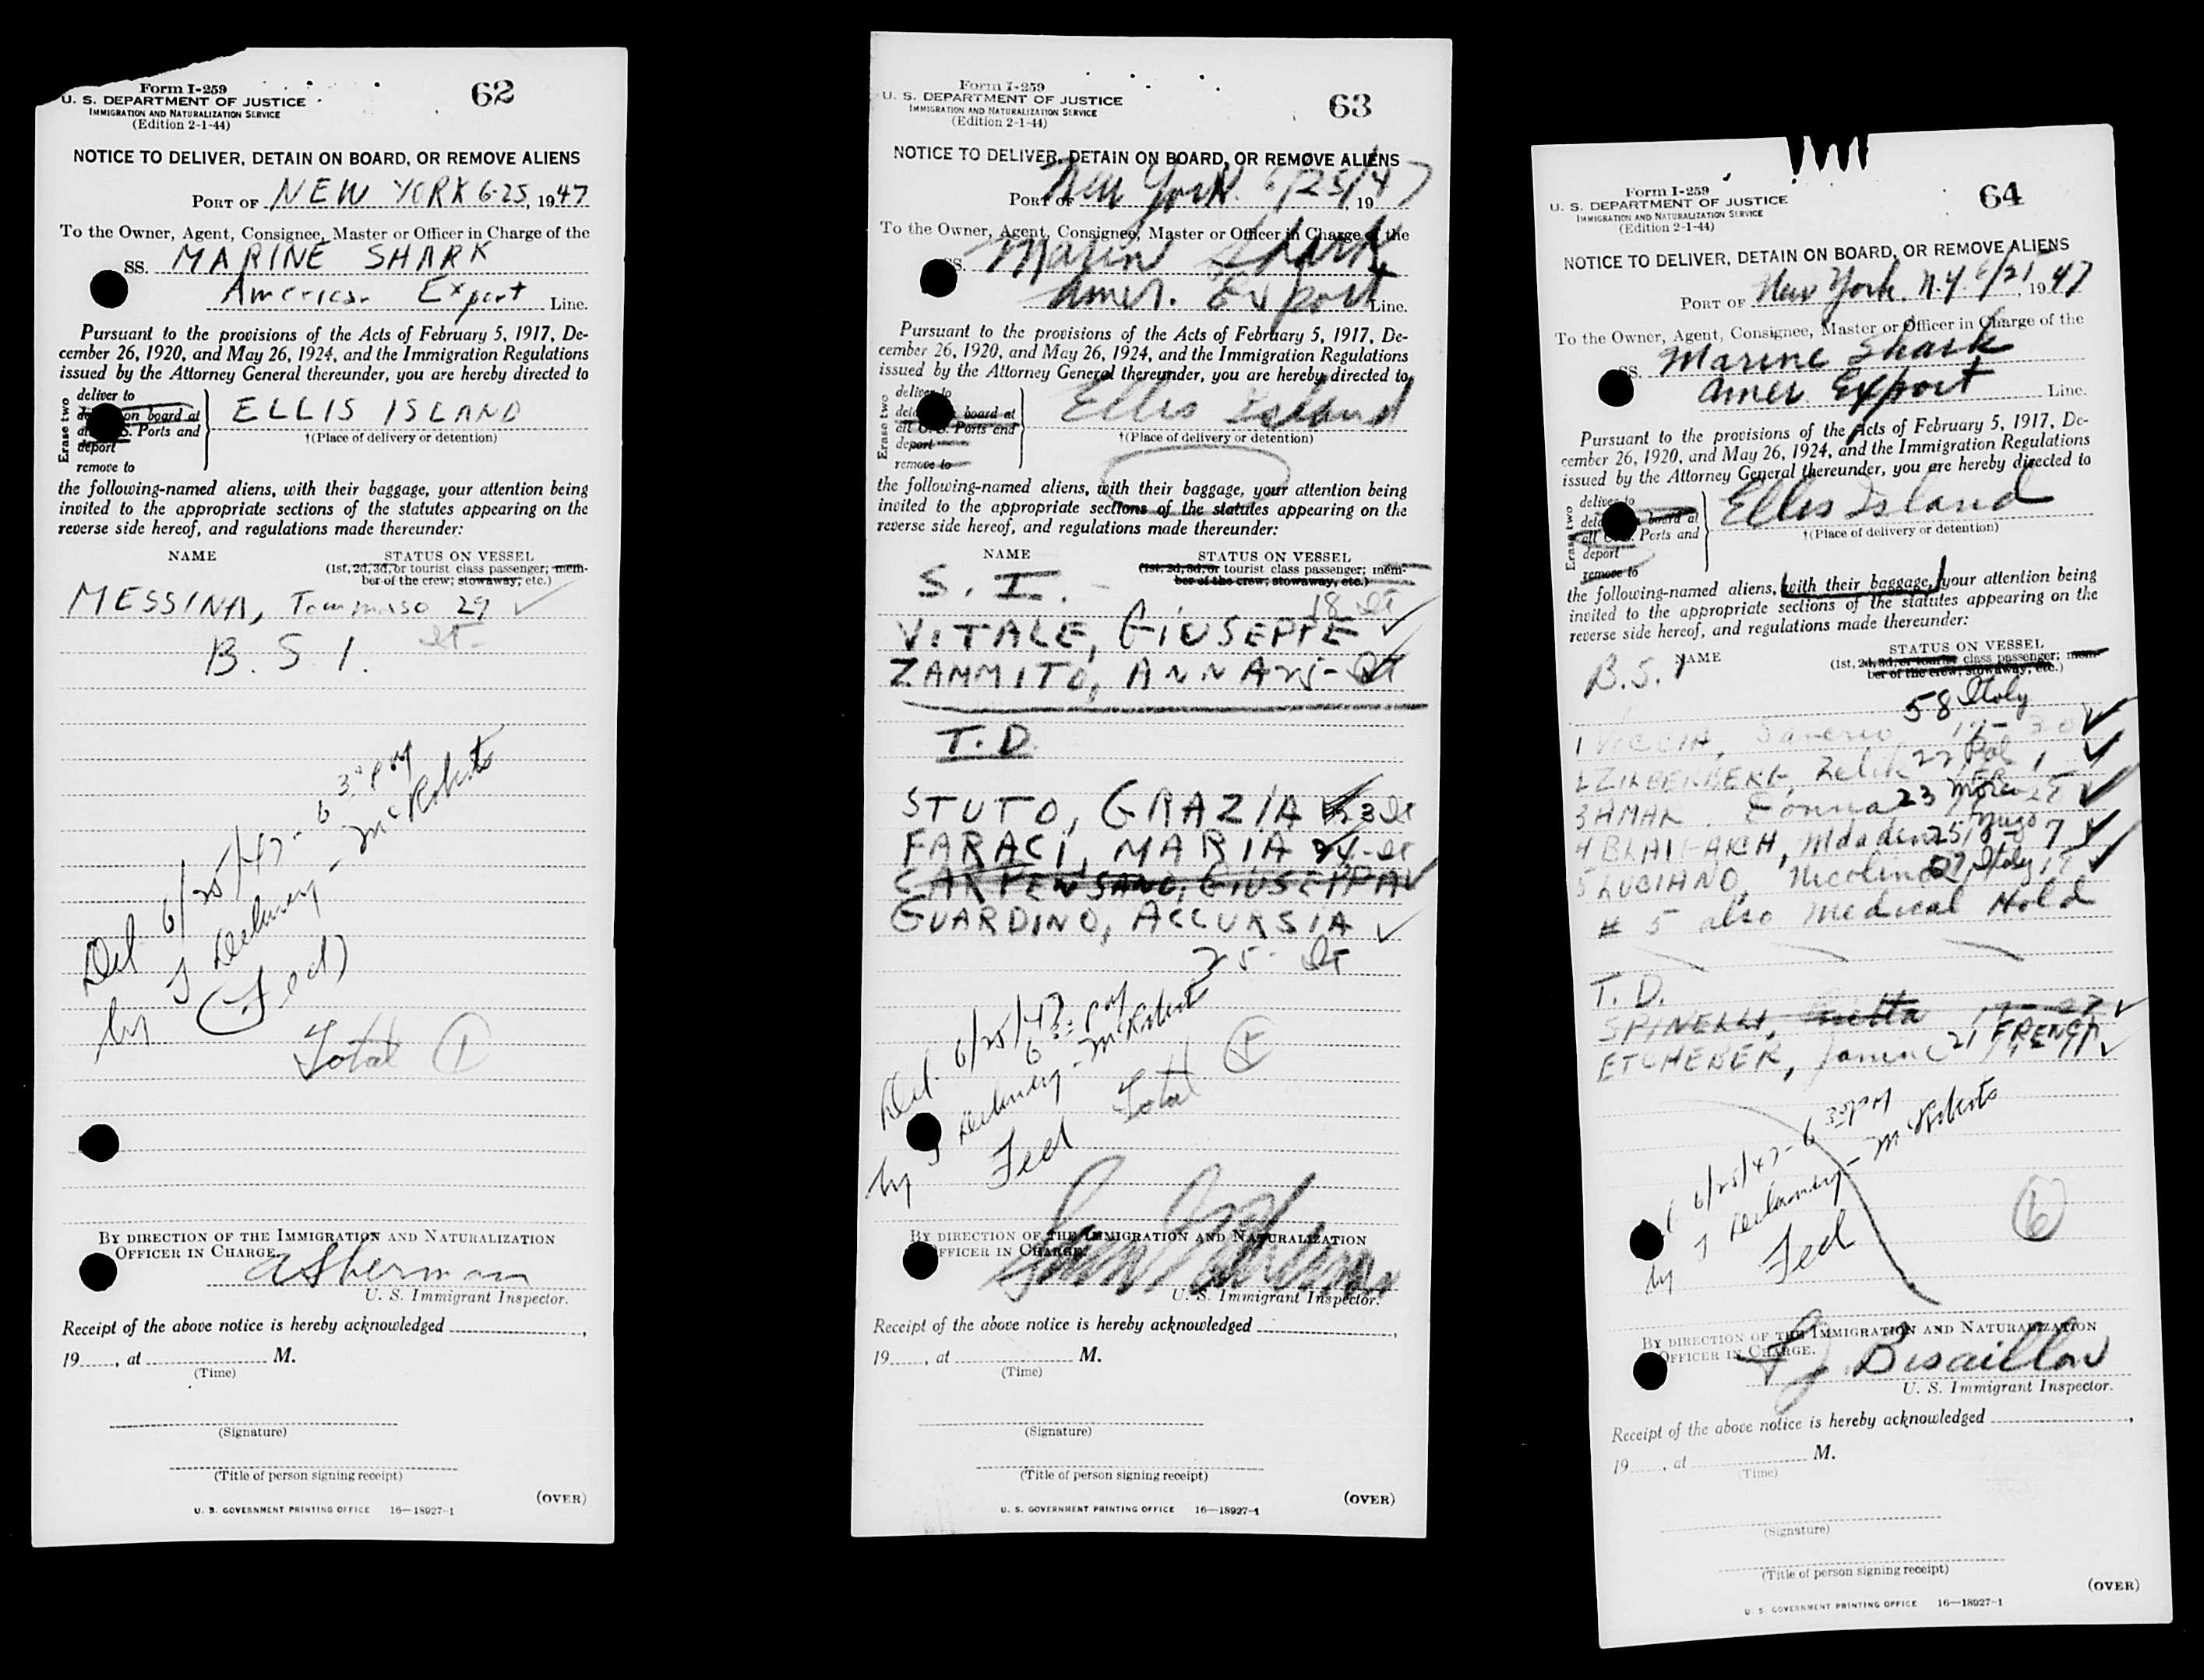 Form I-259
U. S. DEPARTMENT OF JUSTICE
IMMIGRATION AND NATURALIZATION SERVICE
(Edition 2-1-44)
62
NOTICE TO DELIVER, DETAIN ON BOARD, OR REMOVE ALIENS
PORT OF NEW YORK 6-25, 1947
To the Owner, Agent, Consignee, Master or Officer in Charge of the
SS. MARINE SHARK
American Export Line.
Pursuant to the provisions of the Acts of February 5, 1917, De-
cember 26, 1920, and May 26, 1924, and the Immigration Regulations
issued by the Attorney General thereunder, you are hereby directed to
Erase two
deliver to
on board at
Ports and
deport
remove to
ELLIS ISLAND
†(Place of delivery or detention)
the following-named aliens, with their baggage, your attention being
invited to the appropriate sections of the statutes appearing on the
reverse side hereof, and regulations made thereunder:
NAME STATUS ON VESSEL
(1st, 2d, 3d, or tourist class passenger; mem-
ber of the crew; stowaway; etc.)
MESSINA, Tommaso 29 ✓
It-
B. S. I.
Del 6/25/47- 6 30 PM
by J Delaney - McRoberts
(Fed)
Total (1)
BY DIRECTION OF THE IMMIGRATION AND NATURALIZATION
OFFICER IN CHARGE.
A Sherman
U. S. Immigrant Inspector.
Receipt of the above notice is hereby acknowledged ,
19 , at M.
(Time)
(Signature)
(Title of person signing receipt)
(OVER)
U. S. GOVERNMENT PRINTING OFFICE 16—18927-1
Form I-259
U. S. DEPARTMENT OF JUSTICE
IMMIGRATION AND NATURALIZATION SERVICE
(Edition 2-1-44)
63
NOTICE TO DELIVER, DETAIN ON BOARD, OR REMOVE ALIENS
PORT OF New York. 6/25/47, 19
To the Owner, Agent, Consignee, Master or Officer in Charge of the
SS. Marin Shark
Amer. Export Line.
Pursuant to the provisions of the Acts of February 5, 1917, De-
cember 26, 1920, and May 26, 1924, and the Immigration Regulations
issued by the Attorney General thereunder, you are hereby directed to
Erase two
deliver to
board at
all U.S. Ports and
deport
remove to
Ellis Island
†(Place of delivery or detention)
the following-named aliens, with their baggage, your attention being
invited to the appropriate sections of the statutes appearing on the
reverse side hereof, and regulations made thereunder:
NAME STATUS ON VESSEL
(1st, 2d, 3d, or tourist class passenger; mem-
ber of the crew; stowaway, etc.)
S. I. -
18 It
VITALE, GIUSEPPE ✓
ZAMMITO, ANNA 25- It ✓
T.D.
STUTO, GRAZIA 23 It
FARACI, MARIA 24-It
GIUSEPPA ✓
GUARDINO, ACCURSIA ✓
25- It
Del. 6/25/47 6 30 PM
by J Delaney - McRoberts
Fed
Total
BY DIRECTION OF THE IMMIGRATION AND NATURALIZATION
OFFICER IN CHARGE.
U. S. Immigrant Inspector.
Receipt of the above notice is hereby acknowledged ,
19 , at M.
(Time)
(Signature)
(Title of person signing receipt)
(OVER)
U. S. GOVERNMENT PRINTING OFFICE 16—18927-1
Form I-259
U. S. DEPARTMENT OF JUSTICE
IMMIGRATION AND NATURALIZATION SERVICE
(Edition 2-1-44)
64
NOTICE TO DELIVER, DETAIN ON BOARD, OR REMOVE ALIENS
PORT OF New York, N.Y. 6/25, 1947
To the Owner, Agent, Consignee, Master or Officer in Charge of the
SS. Marine Shark
Amer Export Line.
Pursuant to the provisions of the Acts of February 5, 1917, De-
cember 26, 1920, and May 26, 1924, and the Immigration Regulations
issued by the Attorney General thereunder, you are hereby directed to
Erase two
deliver to
board at
all Ports and
deport
remove to
Ellis Island
†(Place of delivery or detention)
the following-named aliens, with their baggage, your attention being
invited to the appropriate sections of the statutes appearing on the
reverse side hereof, and regulations made thereunder:
NAME STATUS ON VESSEL
B.S.I
(1st, 2d, 3d, or tourist class passenger; mem-
ber of the crew; stowaway, etc.)
58 Italy
1 Saverio 17- 30 ✓
2 ZILBERBERG, Zelik 22 Pol 1 ✓
3 AMAR, Donna 23 ✓
4 25 7 ✓
5 LUCIANO, Nicolino Italy 19 ✓
# 5 also Medical Hold
T. D.
SPINELLI, 17- 27 ✓
ETCHEBER, Janine 21 FRENCH ✓
6/25/47- 6 30 PM
by J Delaney - McRoberts
Fed
(6)
BY DIRECTION OF THE IMMIGRATION AND NATURALIZATION
OFFICER IN CHARGE.
Bisaillon
U. S. Immigrant Inspector.
Receipt of the above notice is hereby acknowledged ,
19 , at M.
(Time)
(Signature)
(Title of person signing receipt)
(OVER)
U. S. GOVERNMENT PRINTING OFFICE 16—18927-1